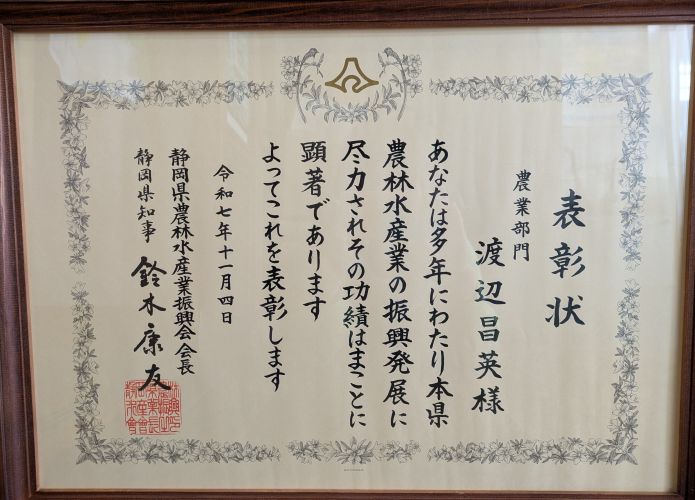 表彰状
農業部門
渡辺昌英様
あなたは多年にわたり本県
農林水産業の振興発展に
尽力されその功績はまことに
顕著であります
よってこれを表彰します
令和七年十一月四日
静岡県農林水産業振興会会長
静岡県知事 鈴木康友